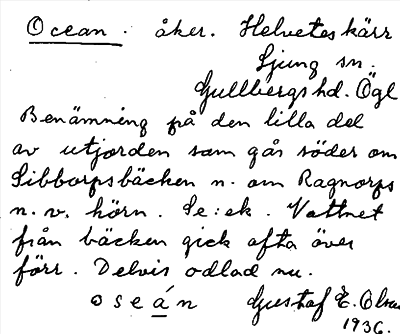 Ocean. åker. Helvetes kärr
Ljung sn.
Gullbergs hd. Ögl
Benämning på den lilla del
av utjorden som går söder om
Sibborpsbäcken n. om Ragnorps
n. v. hörn. Se: ek. Vattnet
från bäcken gick ofta över
förr. Delvis odlad nu.
oseán Gustaf E. Olsson
1936.